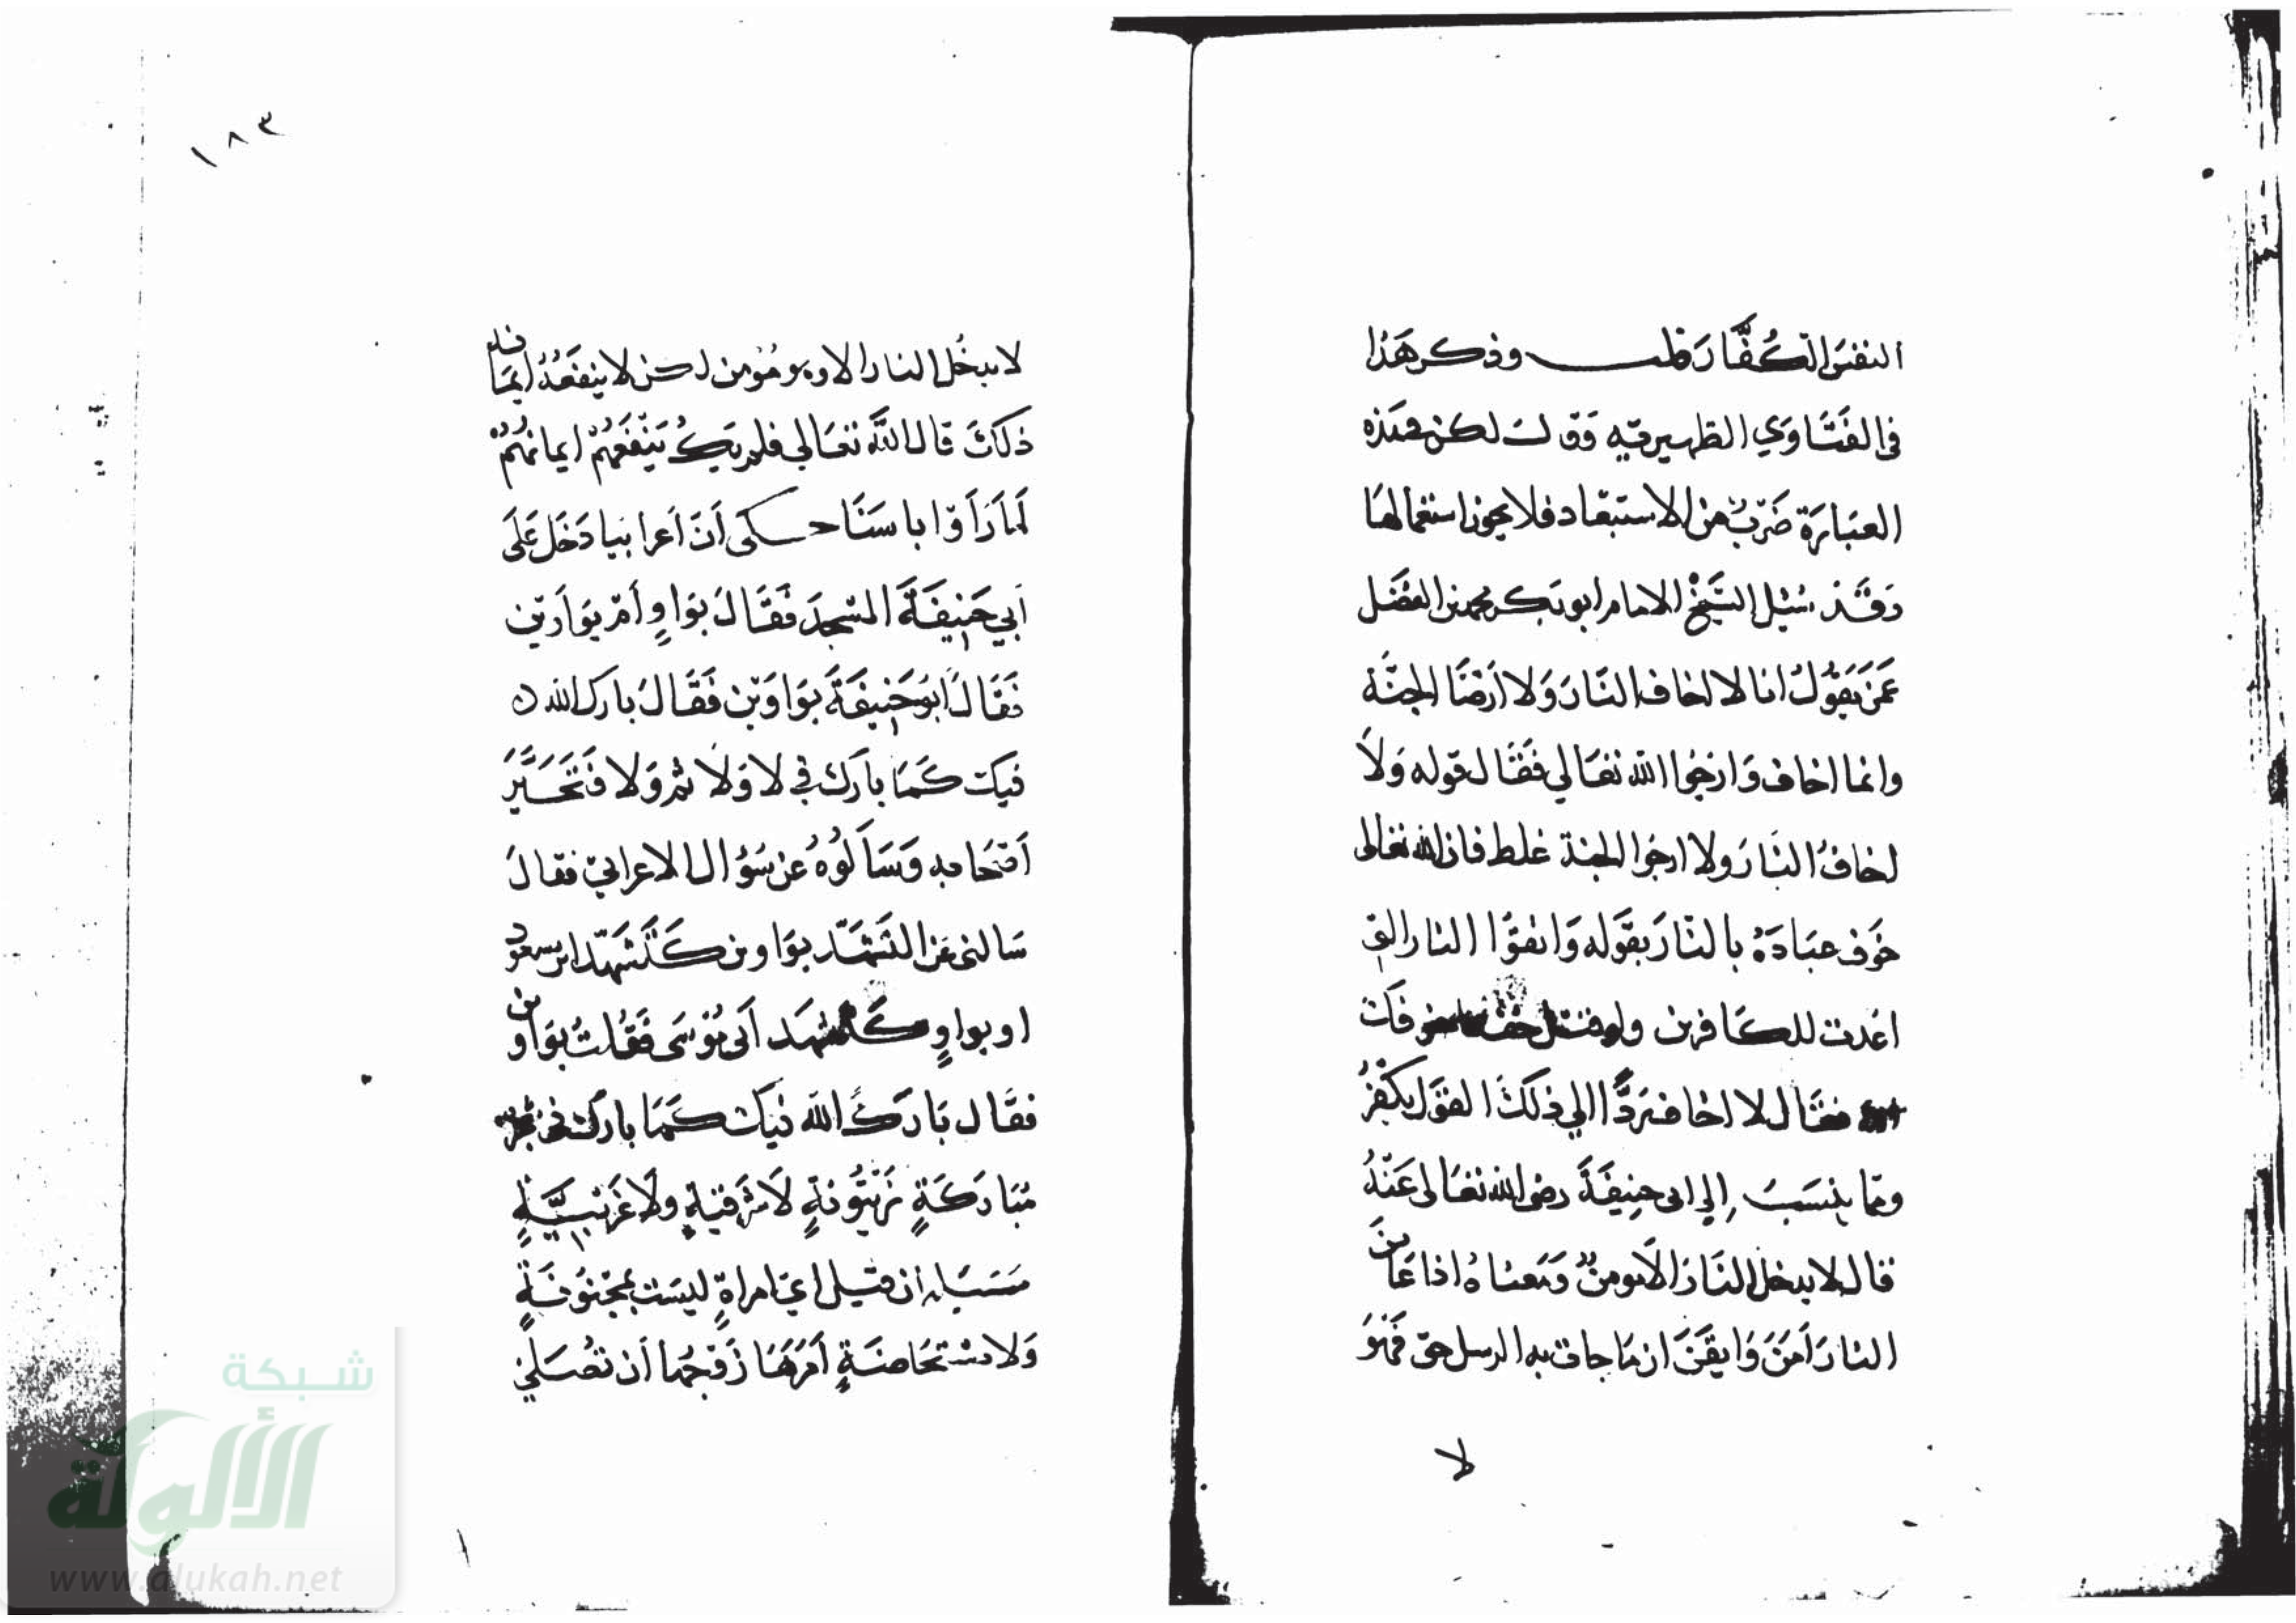 النفس الكفار قلت وذكر هذا
في الفتاوي الظهيرية وقال لكن هذه
العبارة ضرب من الاستبعاد فلا يجوز استعمالها
وقد سئل الشيخ الامام ابو بكر محمد بن الفضل
عمن يقول انا لا اخاف النار ولا ارضا الجنة
وانما اخاف وارجوا الله تعالي فقال قوله ولا
اخاف النار ولا ارجوا الجنة غلط فان الله تعالى
خوف عباده بالنار بقوله واتقوا النار التي
اعدت للكافرين ولو قيل
فقال لا اخاف ردا الي ذلك القول يكفر
ومما ينسب الى ابى حنيفة رضى الله تعالى عنه
قال لا يدخل النار الا مومن ومعناه اذا عاين
النار آمن وايقن ان ما جات به الرسل حق فهو
لا
١٨٣
لا يدخل النار الا وهو مؤمن لكن لا ينفعه ايمانه
ذلك قال الله تعالي فلم يك ينفعهم ايمانهم
لما راوا باسنا حكى ان اعرابيا دخل على
ابي حنيفة المسجد فقال بواو أم بواوين
فقال ابو حنيفة بواوين فقال بارك الله
فيك كما بارك في لا ولا ثم ولا فتحير
اصحابه وسألوه عن سؤال الاعرابي فقال
سالنى عن التشهد بواوين كتشهد ابن مسعود
او بواو كتشهد ابى موسى فقلت بواوين
فقال بارك الله فيك كما بارك في شجرة
مباركة زيتونة لا شرقية ولا غربية
مسئلة ان قيل اي امراة ليست بمجنونة
ولا مستحاضة امرها زوجها ان تصلي
شبكة
الألوكة
www.alukah.net